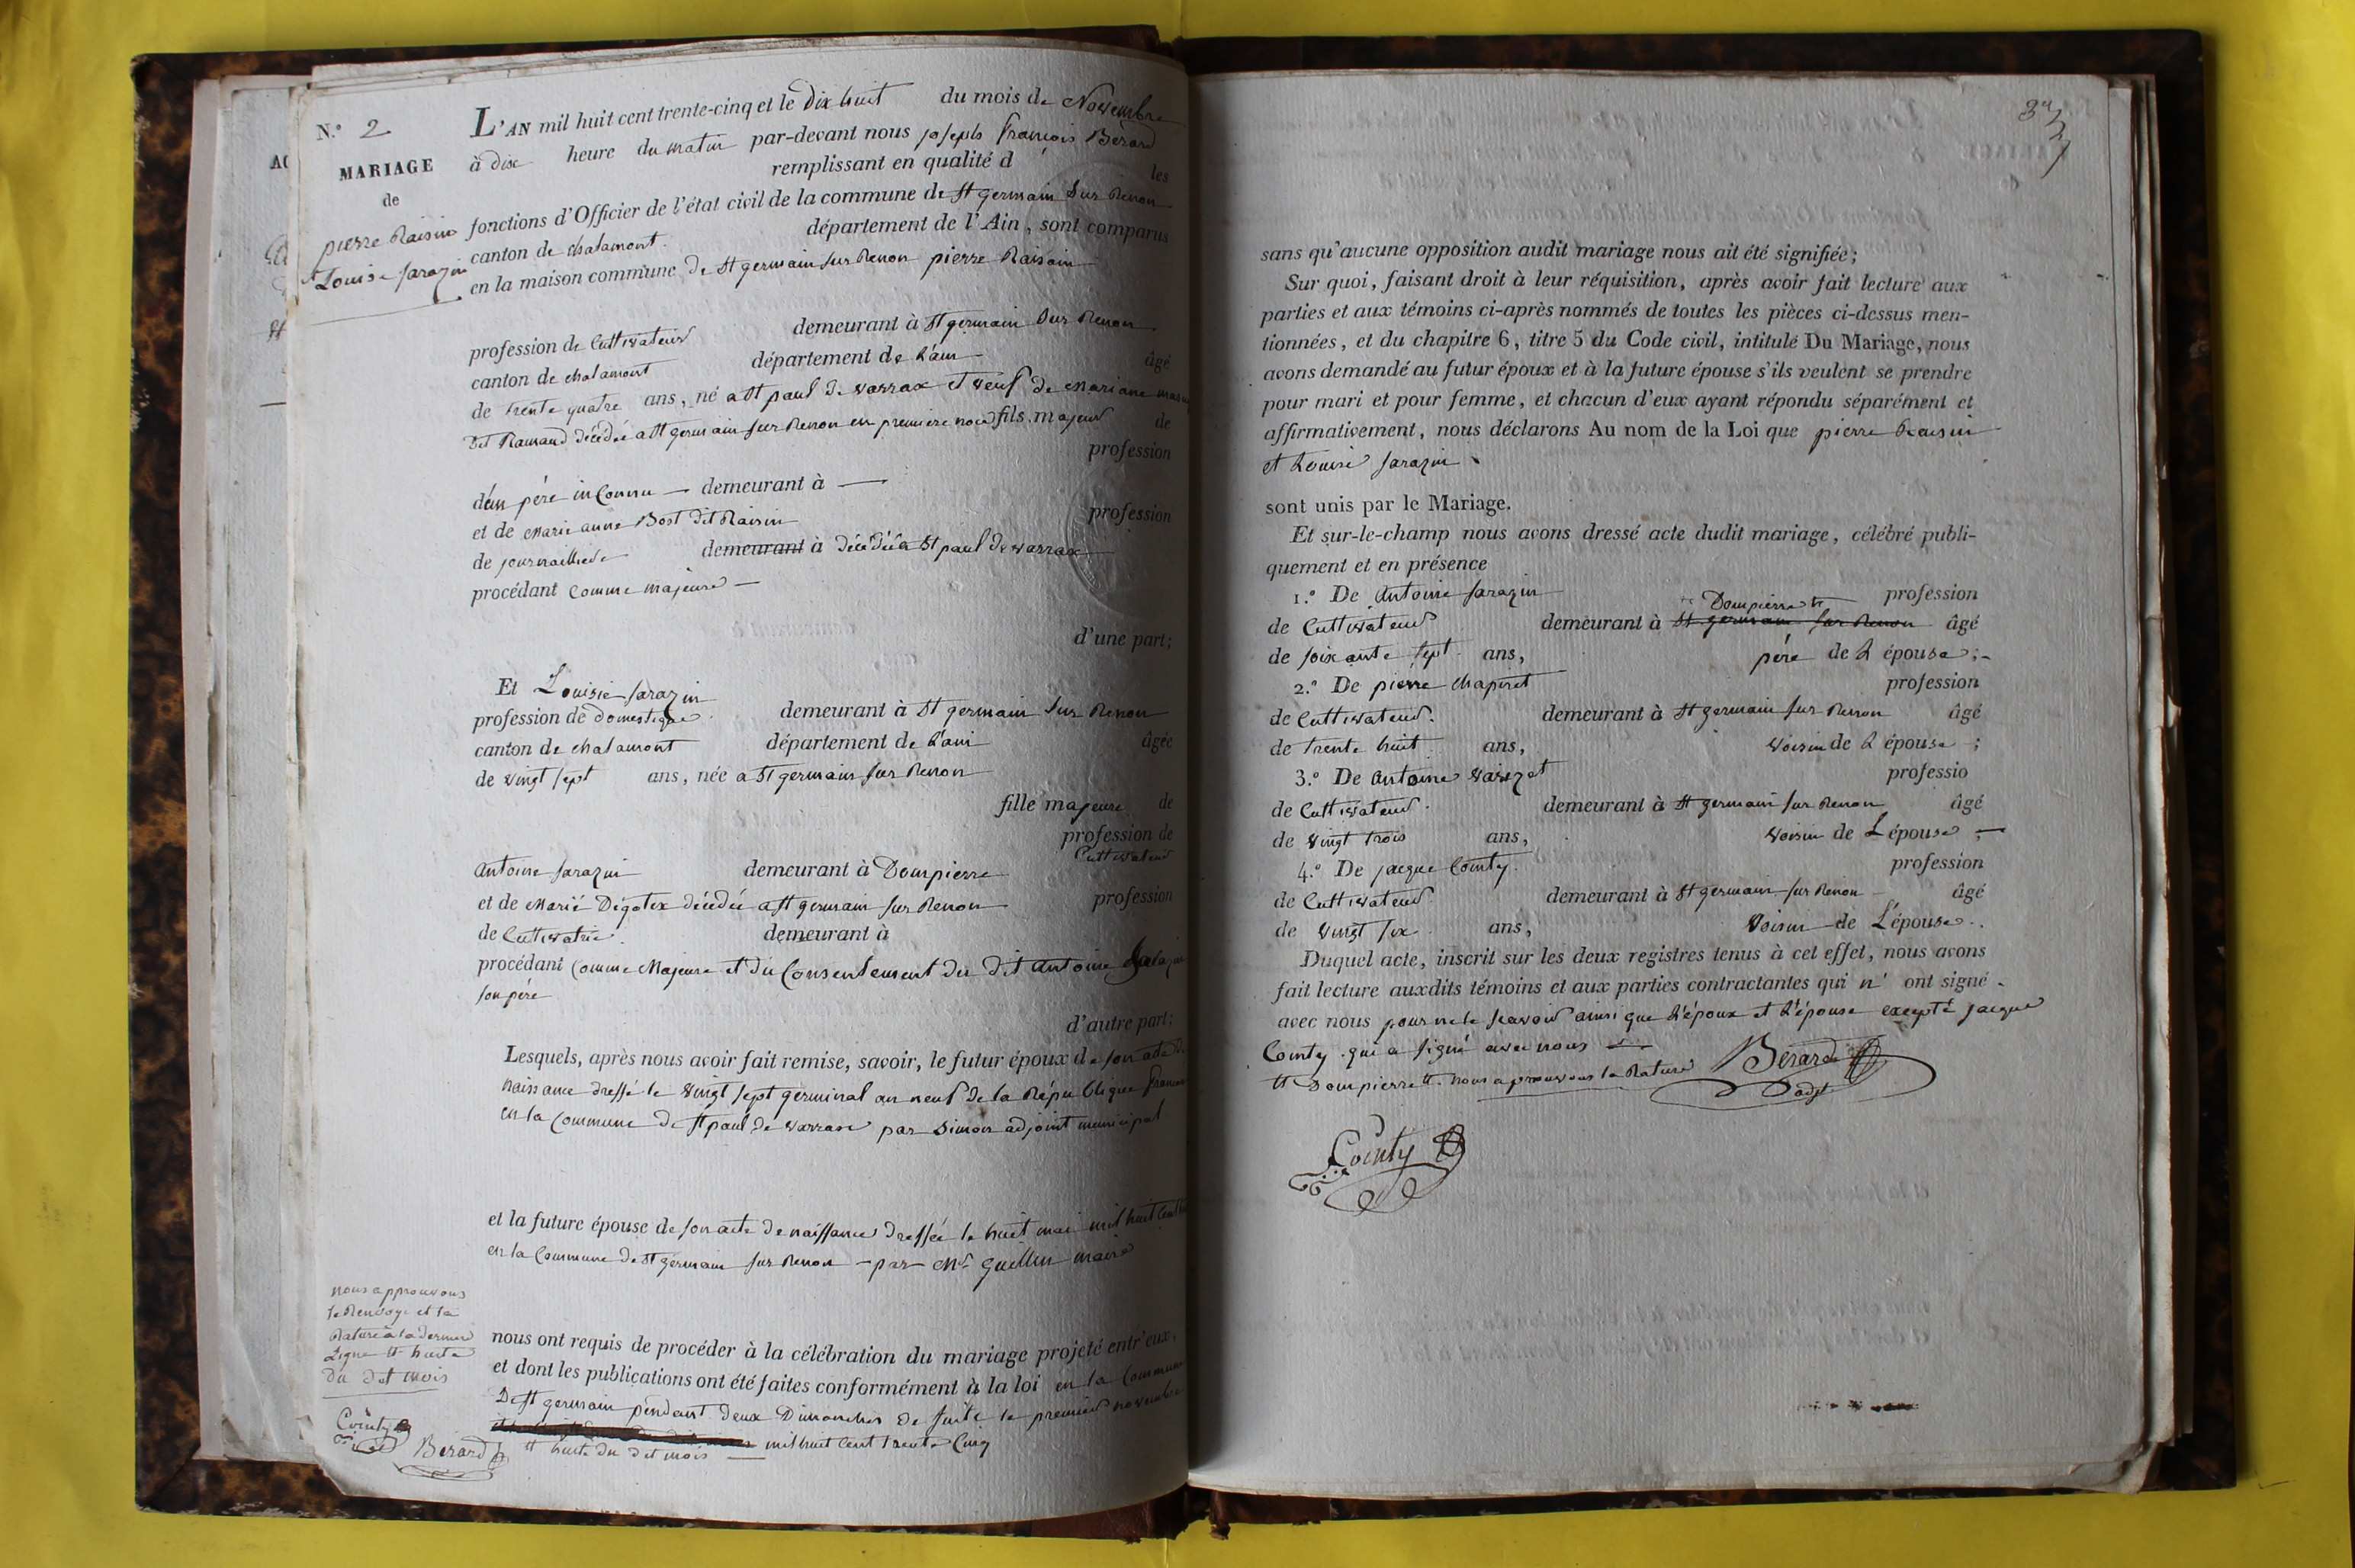 N.° 2
MARIAGE
de
pierre Raisin
et Louise Sarazin
L'AN mil huit cent trente-cinq et le Dix huit du mois de Novembre
à dix heure du matin par-devant nous joseph françois Bérard
remplissant en qualité d les
fonctions d'Officier de l'état civil de la commune de St germain Sur Renon
canton de chalamont. département de l'Ain, sont comparus
en la maison commune de St germain sur Renon pierre Raisin
profession de Cultivateur demeurant à St germain Sur Renon
canton de chalamont département de L'ain âgé
de trente quatre ans, né a St paul de varrax et veuf de Mariane
Dit Ramaud décédée a St germain sur Renon en premiere noce fils majeur de
profession
d'un père inconnu — demeurant à —
et de Marie anne Bost dit Raisin profession
de journaillere demeurant à décédée a St paul de varrax
procédant comme majeure —
d'une part;
Et Louise Sarazin
profession de domestique demeurant à St germain Sur Renon
canton de chalamont département de L'ain âgée
de vingt sept ans, née a St germain sur Renon
fille majeure de
profession de
Cultivateur
antoine Sarazin demeurant à Dompierre
et de Marie Dégotex décédée a St germain sur Renon profession
de Cultivatrice. demeurant à
procédant comme Majeure et du Consentement du dit antoine Sarazin
son père
d'autre part;
Lesquels, après nous avoir fait remise, savoir, le futur époux de son acte de
naissance dressé le vingt sept germinal an neuf de la République
en la commune de St paul de varrax par Simon adjoint municipal
et la future épouse de son acte de naissance dressée le huit mai mil huit cent
en la Commune de St germain sur Renon — par Mr Guillin maire
nous ont requis de procéder à la célébration du mariage projeté entr'eux,
et dont les publications ont été faites conformément à la loi en la Commune
De St germain pendant deux Dimanches de suite le premier novembre
tt huit du dit mois — mil huit cent trente Cinq
nous approuvons
le Renvoye et la
Rature a la derniere
Ligne tt huit
du dit mois
Cointy
Bérard
sans qu'aucune opposition audit mariage nous ait été signifiée;
Sur quoi, faisant droit à leur réquisition, après avoir fait lecture aux
parties et aux témoins ci-après nommés de toutes les pièces ci-dessus men-
tionnées, et du chapitre 6, titre 5 du Code civil, intitulé Du Mariage, nous
avons demandé au futur époux et à la future épouse s'ils veulent se prendre
pour mari et pour femme, et chacun d'eux ayant répondu séparément et
affirmativement, nous déclarons Au nom de la Loi que pierre Raisin
et Louise Sarazin
sont unis par le Mariage.
Et sur-le-champ nous avons dressé acte dudit mariage, célébré publi-
quement et en présence
1.° De antoine Sarazin profession
tt Dompierre tt
de Cultivateur demeurant à St germain sur Renon âgé
de soixante sept ans, père de L épouse;
2.° De pierre chapiret profession
de Cultivateur. demeurant à St germain sur Renon âgé
de trente huit ans, voisin de L épouse;
3.° De antoine professio
de Cultivateur. demeurant à St germain sur Renon âgé
de vingt trois ans, voisin de L épouse;
4.° De jacque Cointy. profession
de Cultivateur. demeurant à St germain sur Renon âgé
de vingt six ans, Voisin de L'épouse.
Duquel acte, inscrit sur les deux registres tenus à cet effet, nous avons
fait lecture auxdits témoins et aux parties contractantes qui n' ont signé
avec nous pour ne le scavoir ainsi que L'époux et L'épouse excepté jacque
Cointy qui a signé avec nous —
tt Dompierre tt. nous approuvons la Rature Bérard
Cointy